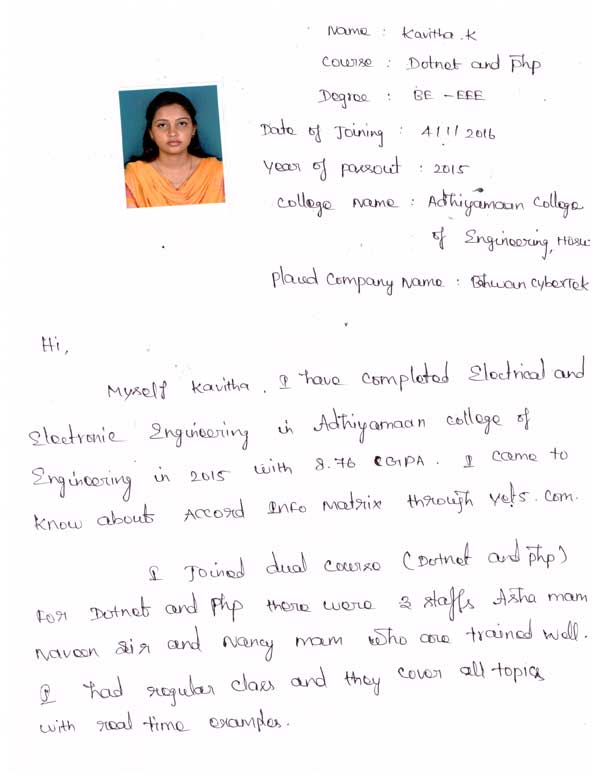 Name : Kavitha.K
Course : Dotnet and Php
Degree : BE - EEE
Date of Joining : 4/1/2016
Year of passout : 2015
College Name : Adhiyamaan College
of Engineering, Hosu
Placed Company Name : Bhwan Cybertek
Hi,
Myself Kavitha. I have completed Electrical and
Electronic Engineering in Adhiyamaan college of
Engineering in 2015 with 8.76 CGPA. I came to
know about Accord Info Matrix through Yet5.com.
I Joined dual course (Dotnet and Php)
For Dotnet and Php there were 3 staffs Asha mam
Naveen sir and Nancy mam who are trained well.
I had regular class and they cover all topics
with real time examples.